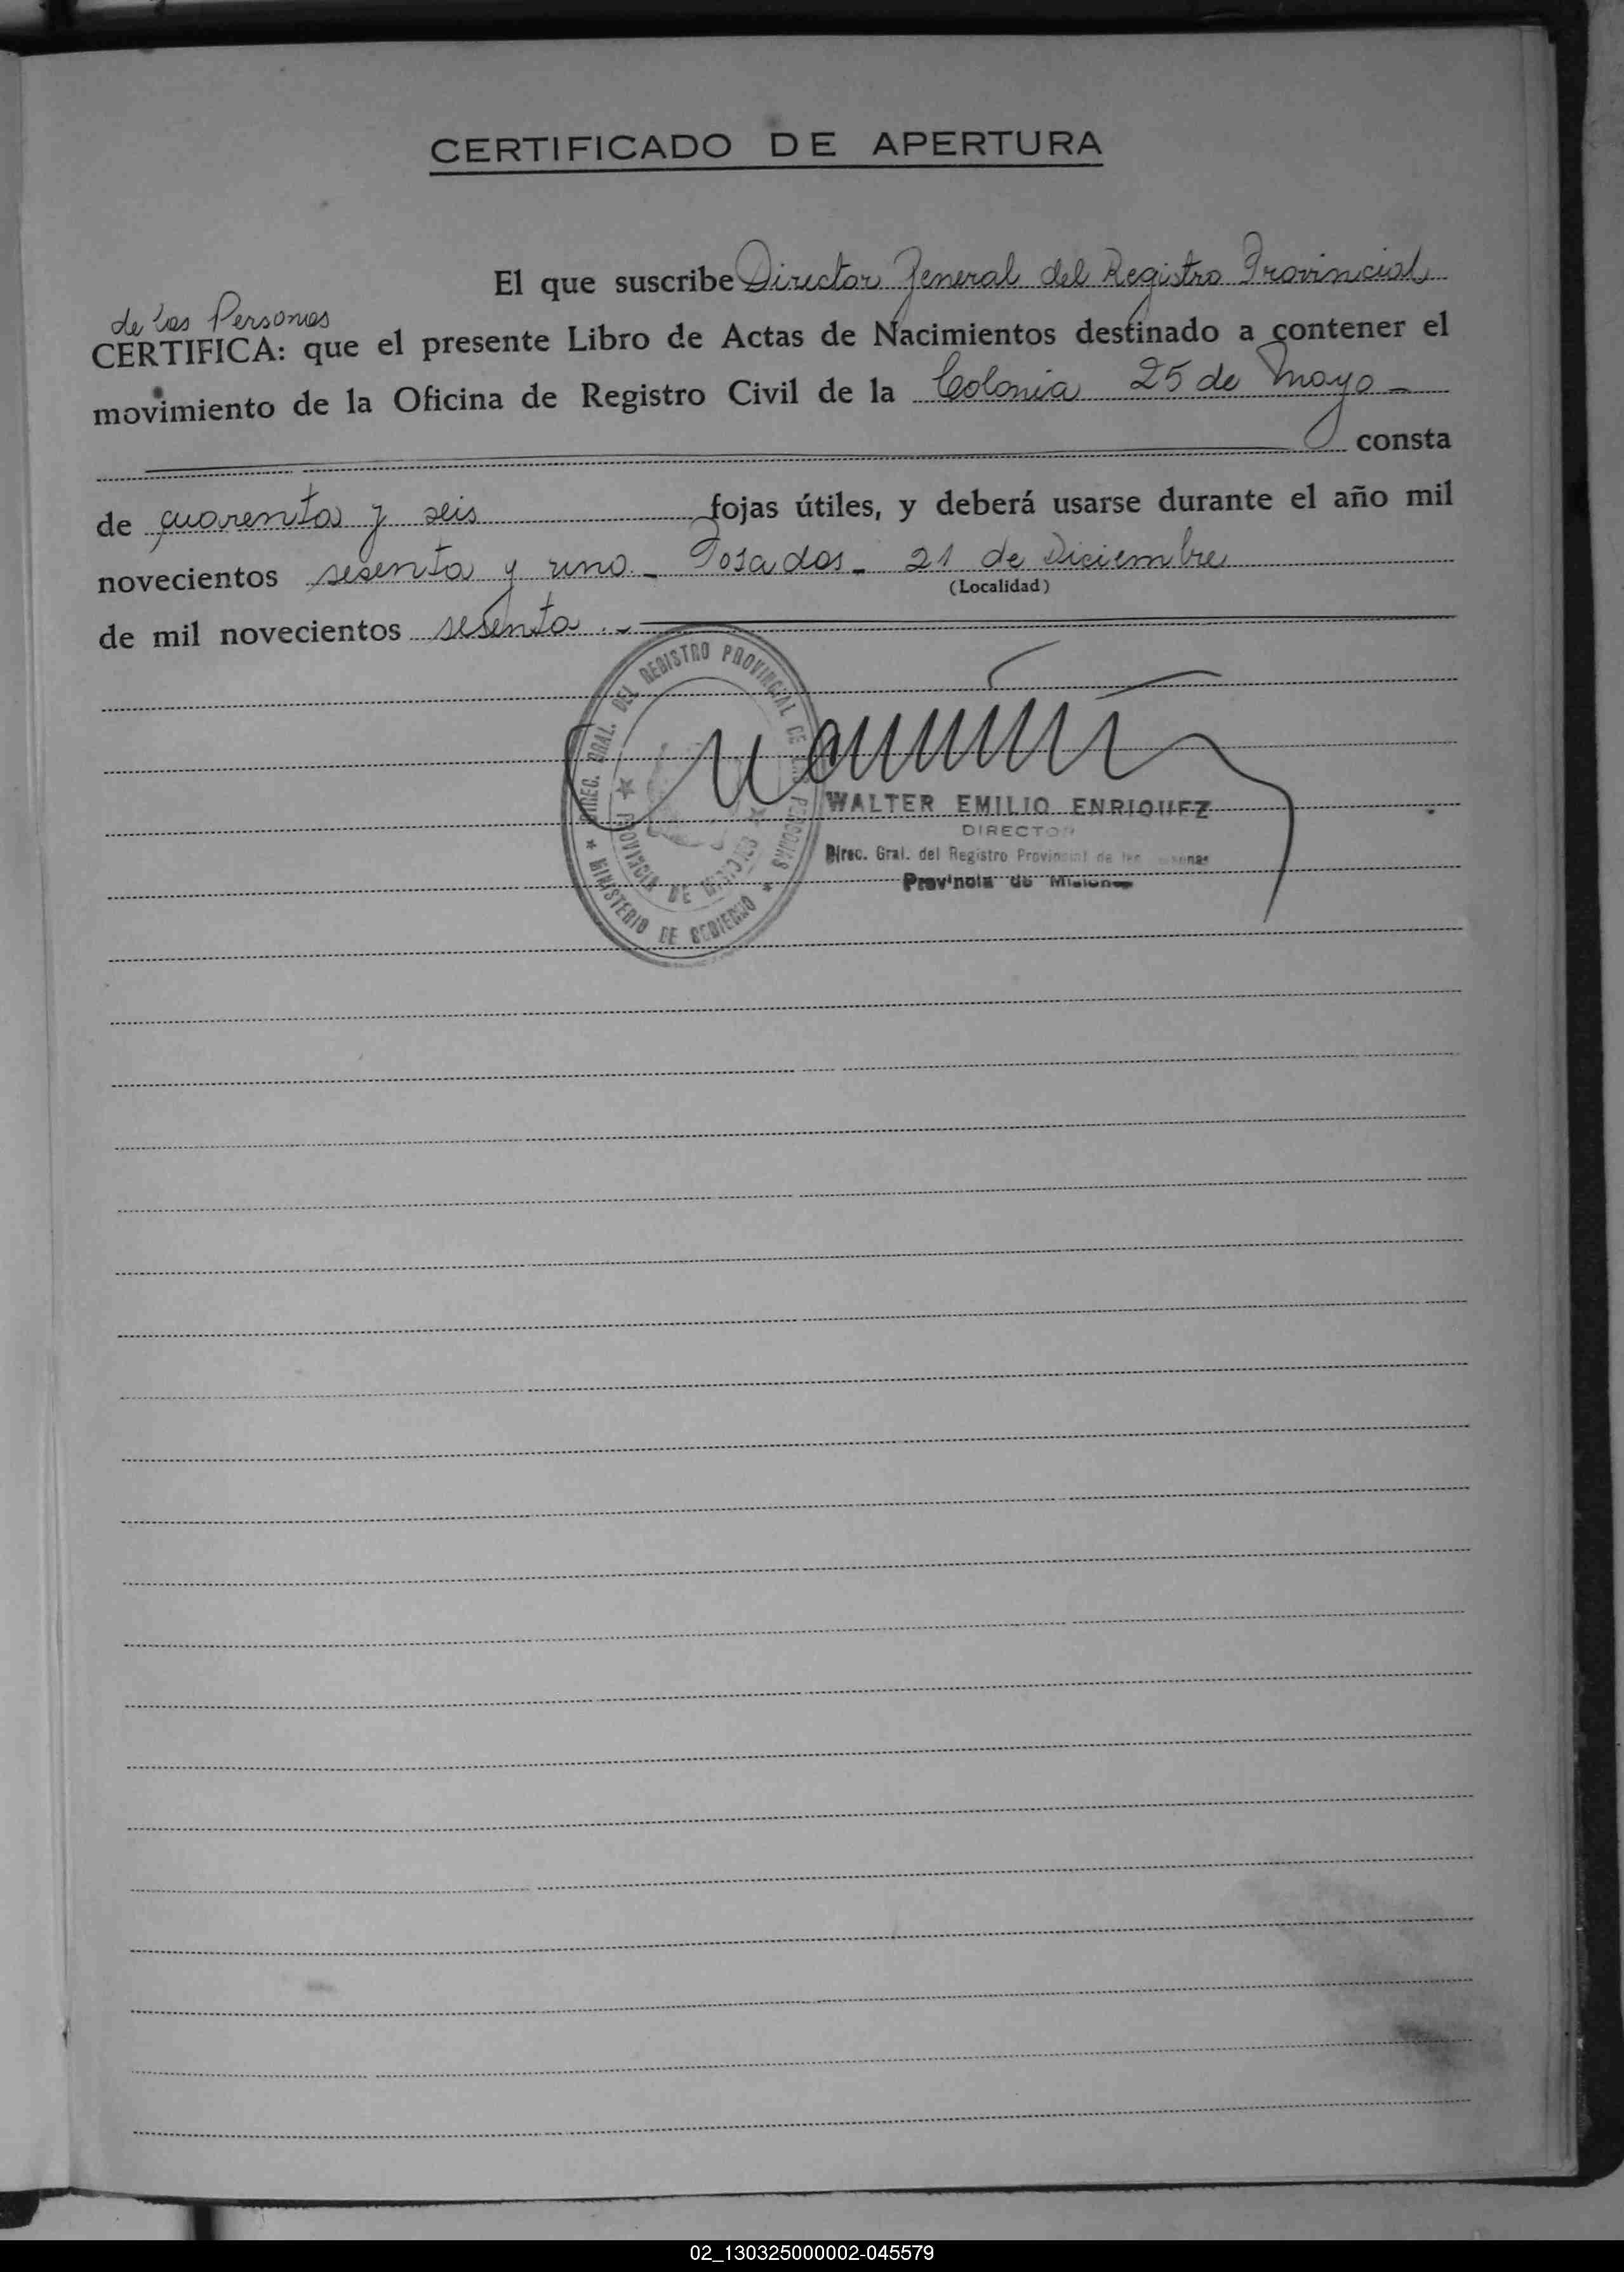 CERTIFICADO DE APERTURA
El que suscribe Director General del Registro Provincial
de las Personas
CERTIFICA: que el presente Libro de Actas de Nacimientos destinado a contener el
movimiento de la Oficina de Registro Civil de la Colonia 25 de Mayo -
consta
de cuarenta y seis fojas útiles, y deberá usarse durante el año mil
novecientos sesenta y uno - Posadas - 21 de Diciembre
(Localidad)
de mil novecientos sesenta.-
DIREC. GRAL. DEL REGISTRO PROVINCIAL DE LAS PERSONAS
PROVINCIA DE MISIONES
MINISTERIO DE GOBIERNO
WALTER EMILIO ENRIQUEZ
DIRECTOR
Direc. Gral. del Registro Provincial de las Personas
Provincia de Misiones
02_130325000002-045579